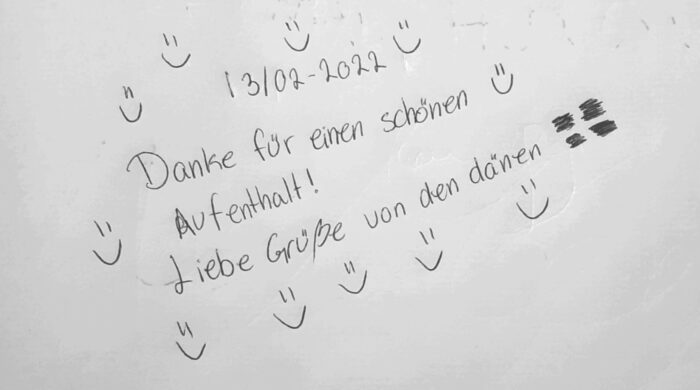 13/02-2022
Danke für einen schönen
Aufenthalt!
Liebe Grüße von den dänen